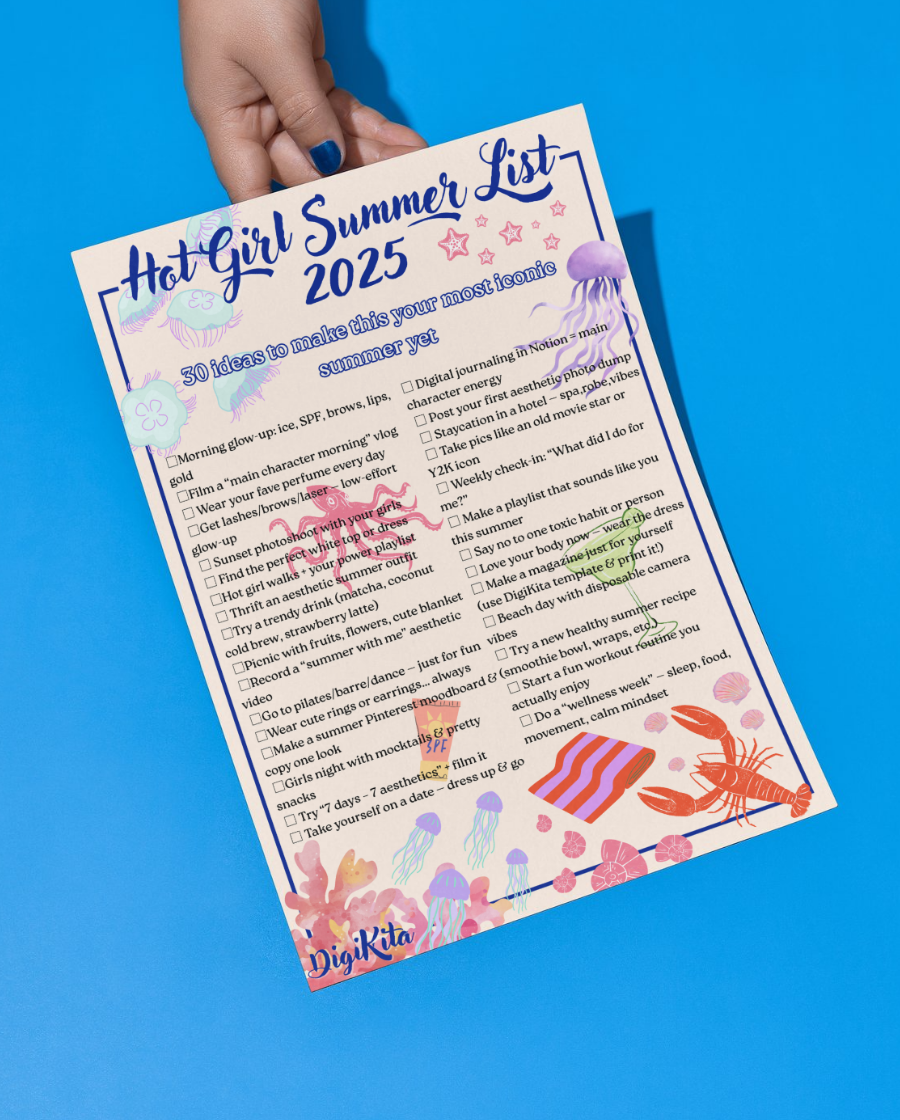 Hot Girl Summer List
2025
30 ideas to make this your most iconic
summer yet
☐Morning glow-up: ice, SPF, brows, lips,
gold
☐Film a “main character morning” vlog
☐ Wear your fave perfume every day
☐Get lashes/brows/laser – low-effort
glow-up
☐ Sunset photoshoot with your girls
☐ Find the perfect white top or dress
☐Hot girl walks + your power playlist
☐ Thrift an aesthetic summer outfit
☐Try a trendy drink (matcha, coconut
cold brew, strawberry latte)
☐Picnic with fruits, flowers, cute blanket
☐Record a “summer with me” aesthetic
video
☐Go to pilates/barre/dance – just for fun
☐Wear cute rings or earrings... always
☐Make a summer Pinterest moodboard &
copy one look
☐Girls night with mocktails & pretty
snacks
☐ Try “7 days – 7 aesthetics” + film it
☐ Take yourself on a date – dress up & go
☐ Digital journaling in Notion = main
character energy
☐ Post your first aesthetic photo dump
☐ Staycation in a hotel – spa,robe,vibes
☐ Take pics like an old movie star or
Y2K icon
☐ Weekly check-in: “What did I do for
me?”
☐ Make a playlist that sounds like you
this summer
☐ Say no to one toxic habit or person
☐ Love your body now – wear the dress
☐ Make a magazine just for yourself
(use DigiKita template & print it!)
☐ Beach day with disposable camera
vibes
☐ Try a new healthy summer recipe
(smoothie bowl, wraps, etc.)
☐ Start a fun workout routine you
actually enjoy
☐ Do a “wellness week” – sleep, food,
movement, calm mindset
SPF
DigiKita